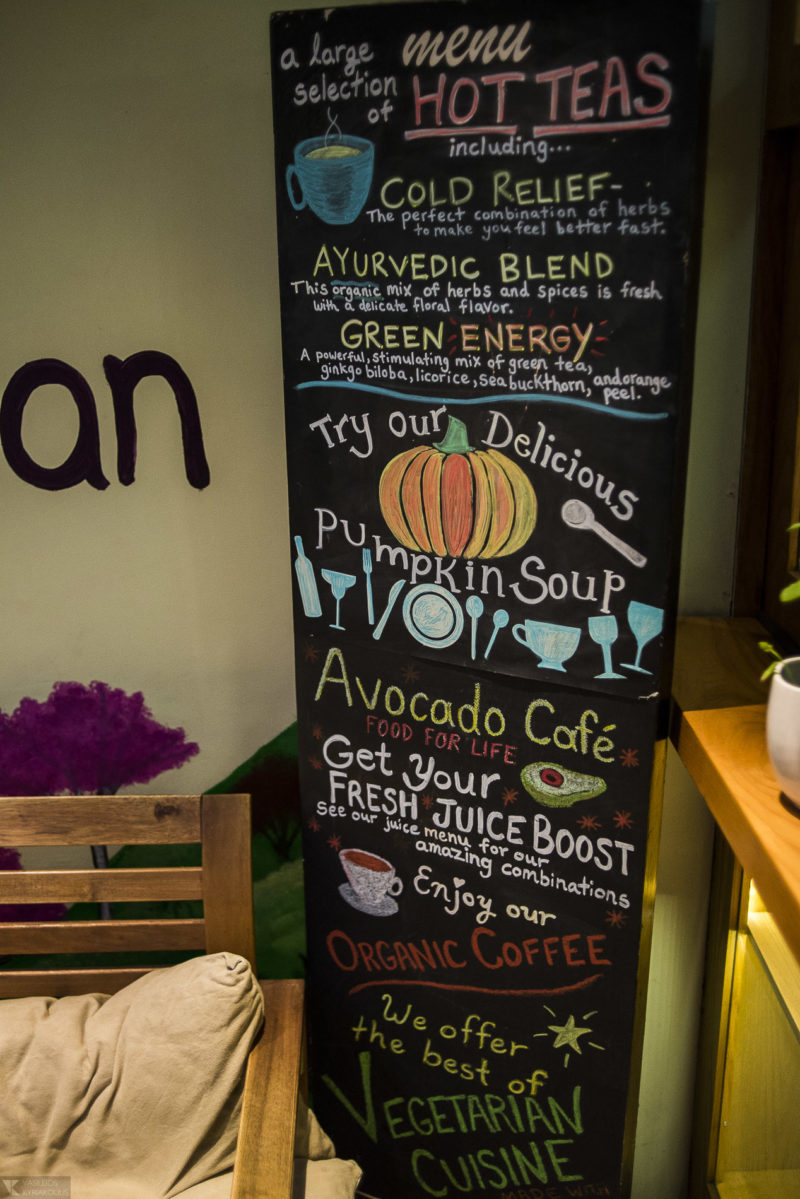 menu
a large
selection
of
HOT TEAS
including...
COLD RELIEF-
The perfect combination of herbs
to make you feel better fast.
AYURVEDIC BLEND
This organic mix of herbs and spices is fresh
with a delicate floral flavor.
GREEN ENERGY
A powerful, stimulating mix of green tea,
ginkgo biloba, licorice, seabuckthorn, and orange
peel.
an
Try our Delicious
Pumpkin Soup
Avocado Café
FOOD FOR LIFE
Get Your
FRESH JUICE BOOST
see our juice menu for our
amazing combinations
Enjoy our
ORGANIC COFFEE
We offer
the best of
VEGETARIAN
CUISINE
MADE WITH
VASILEIOS